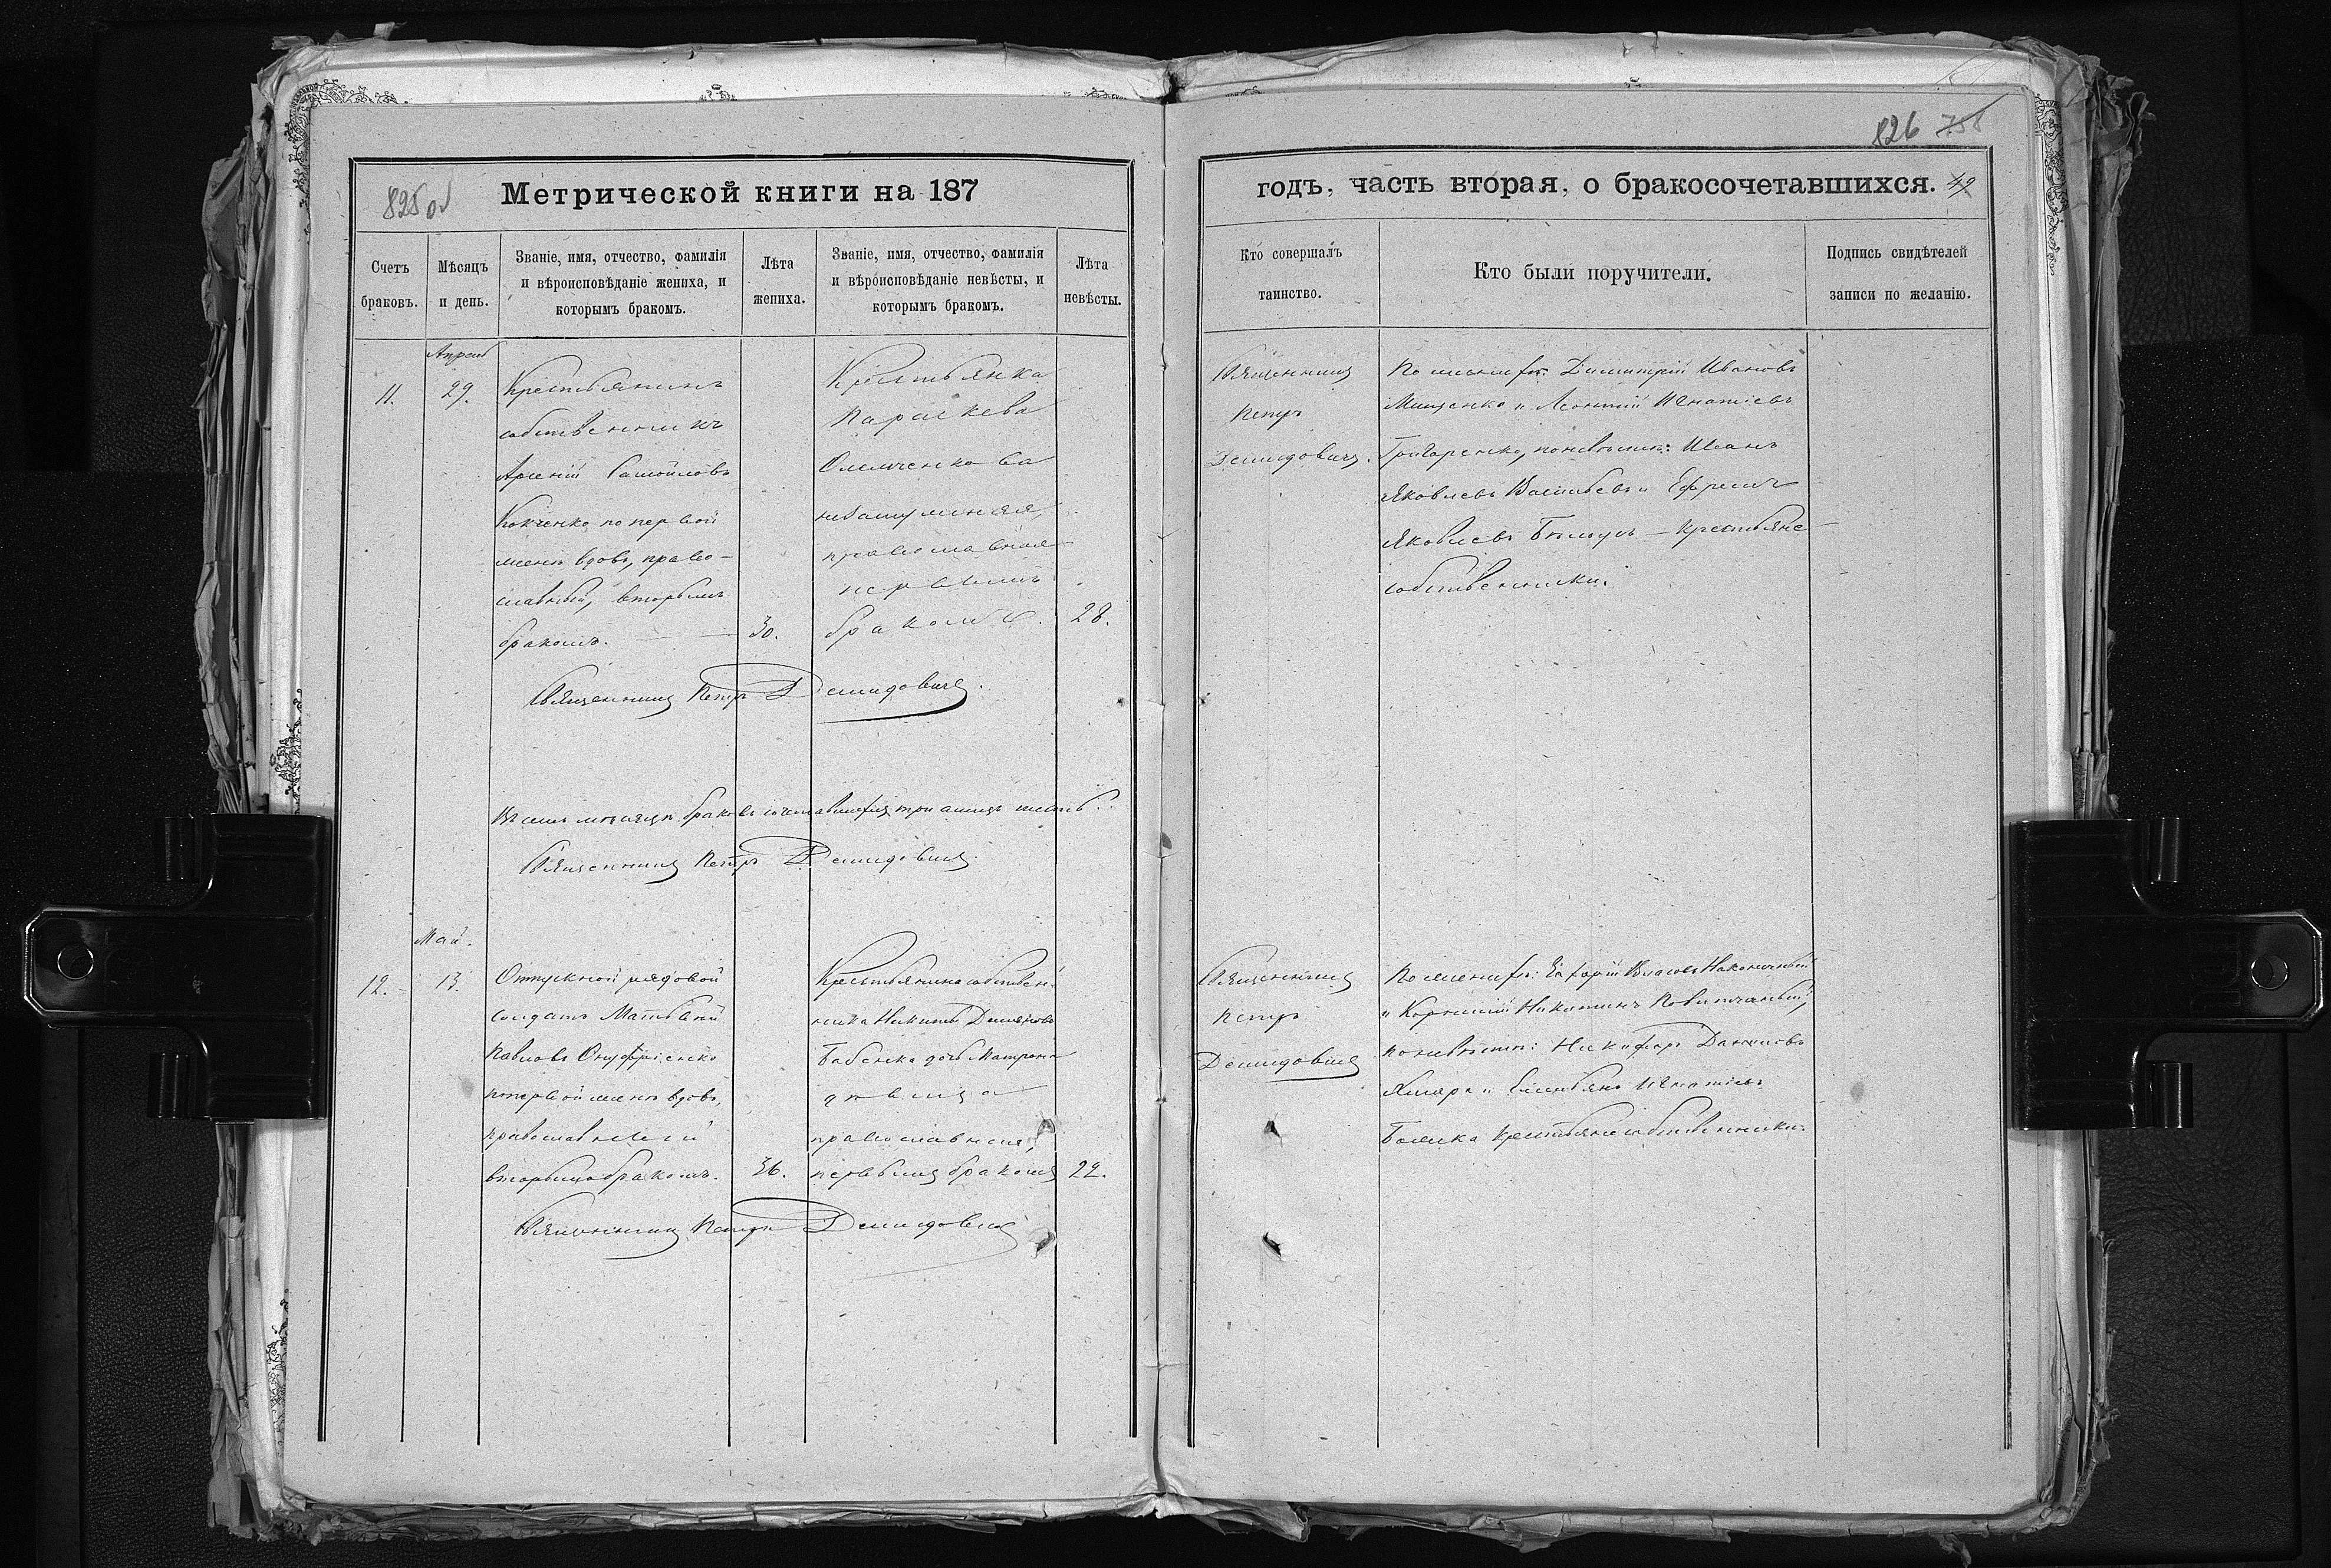 825об
Метрической книги на 187
Счетъ браковъ.
Мѣсяцъ и день.
Званіе, имя, отчество, фамилія
и вѣроисповѣданіе жениха, и
которымъ бракомъ.
Лѣта
жениха.
Званіе, имя, отчество, фамилія
и вѣроисповѣданіе невѣсты, и
которымъ бракомъ.
Лѣта
невѣсты.
Апрель
11.
29.
Крестьянинъ
собственникъ
Арсеній Самойловъ
по первой
женѣ вдовъ, право-
славный, вторымъ
бракомъ.
30.
Крестьянка
Параскева
незамужняя,
православная
первымъ
бракомъ.
28.
Священникъ Петръ Демидовичъ.
Священникъ Петръ Демидовичъ
Май.
12.
13.
Отпускной рядовой
солдатъ Матвѣй
Павловъ Онуфріенко
по первой женѣ вдовъ,
православный
вторымъ бракомъ.
36.
Крестьянина собствен-
ника Никиты Демьянова
Бабенка дочь Матрона
дѣвица
православная,
первымъ бракомъ
22.
Священникъ Петръ Демидовичъ
826 758
годъ, часть вторая, о бракосочетавшихся. 49
Кто совершалъ
таинство.
Кто были поручители.
Подпись свидѣтелей
записи по желанію.
Священникъ
Петръ
Демидовичъ.
По женихѣ: Димитрій Ивановъ
Мищенко и Леонтій Игнатіевъ
Григоренко, по невѣстѣ: Иванъ
Яковлевъ Васильевъ и Ефремъ
Яковлевъ Бѣлоусъ — крестьяне
собственники.
Священникъ
Петръ
Демидовичъ
По женихѣ: Власовъ Наконечный
и Корнилій Никитинъ
по невѣстѣ: Никифоръ Даниловъ
и Емельянъ Игнатіевъ
крестьяне собственники.